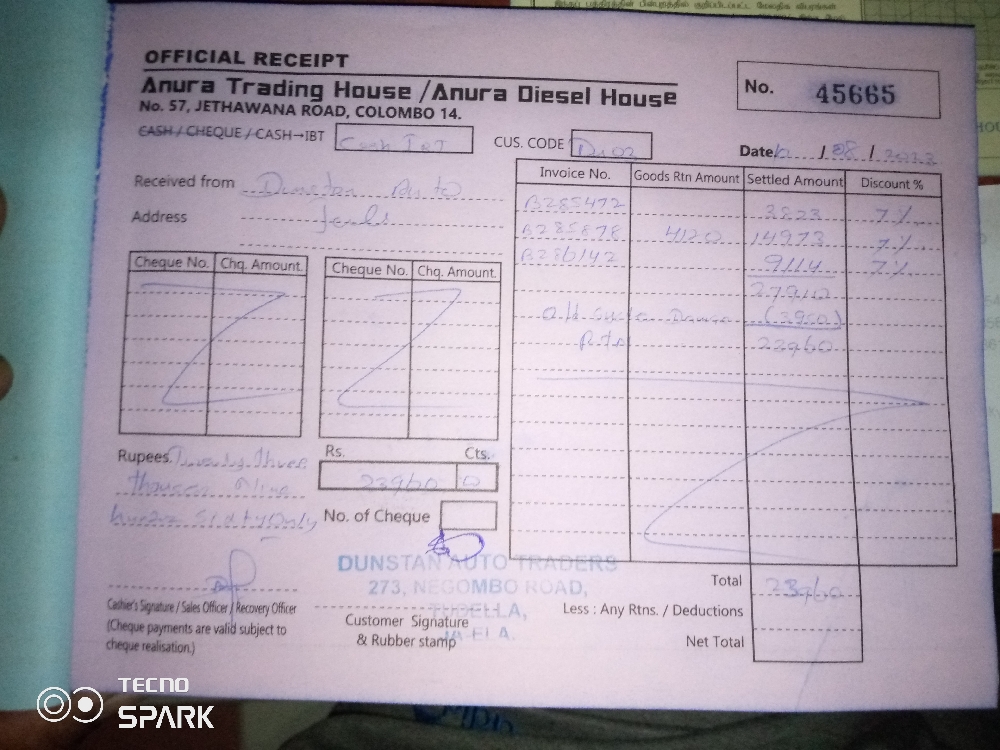 OFFICIAL RECEIPT
Anura Trading House /Anura Diesel House
No. 57, JETHAWANA ROAD, COLOMBO 14.
No. 45665
CASH / CHEQUE / CASH→IBT Cash IBT
CUS. CODE
Date / 08 /
Received from Dunstan Auto
Address
Invoice No. Goods Rtn Amount Settled Amount Discount %
B285472 3823 7%
B285878 4120 14973 7%
B286142 9114 7%
27910
(3950)
23960
Cheque No. Chq. Amount. Cheque No. Chq. Amount.
Rupees. Twenty three
thousand Nine
hundred Sixty Only
Rs. Cts.
23960
No. of Cheque
DUNSTAN AUTO TRADERS
273, NEGOMBO ROAD,
TUDELLA,
JA-ELA.
Cashier's Signature / Sales Officer / Recovery Officer
(Cheque payments are valid subject to
cheque realisation.)
Customer Signature
& Rubber stamp
Total 23960
Less : Any Rtns. / Deductions
Net Total
TECNO
SPARK